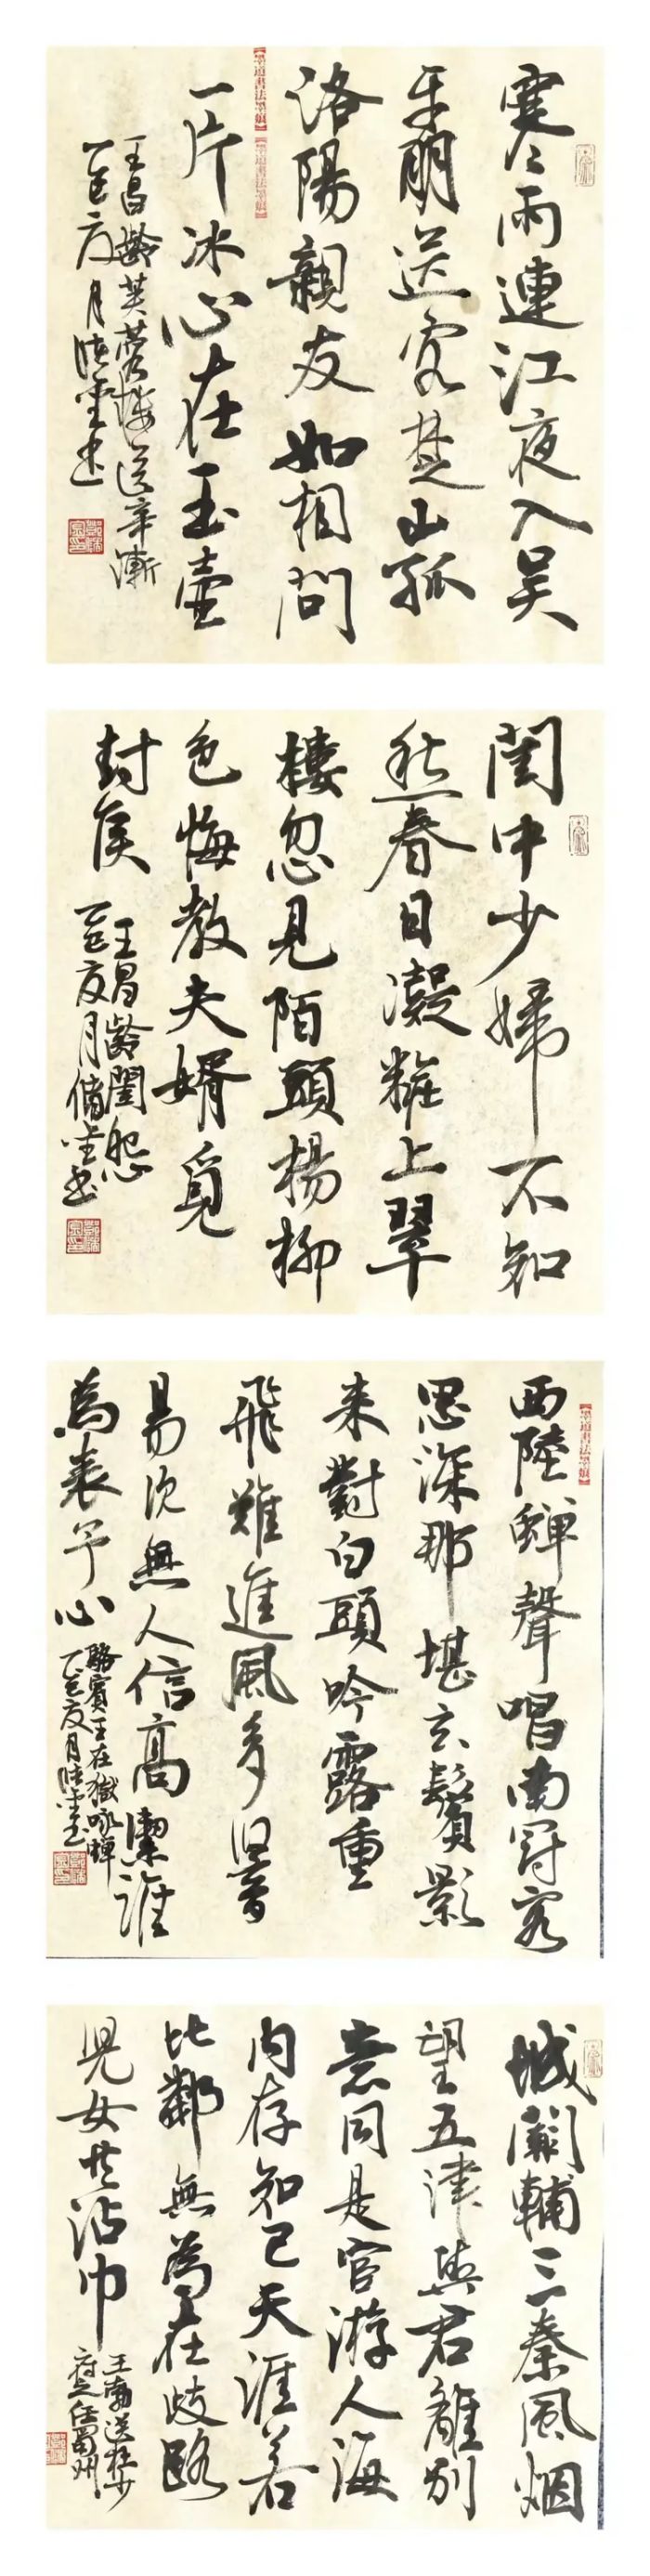 寒雨連江夜入吴
平明送客楚山孤
洛陽親友如相問
一片冰心在玉壺
王昌齡芙蓉樓送辛漸
乙巳夏月
閨中少婦不知
愁春日凝粧上翠
樓忽見陌頭楊柳
色悔教夫婿覓
封侯
王昌齡閨怨
乙巳夏月
西陸蟬聲唱南冠客
思深那堪玄鬢影
来對白頭吟露重
飛難進風多響
易沈無人信高潔誰
為表予心
駱賓王在獄咏蟬
乙巳夏月
城闕輔三秦風烟
望五津與君離别
意同是宦游人海
内存知己天涯若
比鄰無為在歧路
児女共沾巾
王勃送杜少
府之任蜀州